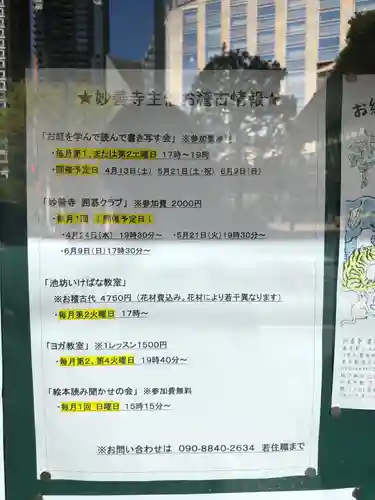 ★妙善寺主催お稽古情報★
「お経を学んで読んで書き写す会」※参加費無料
・毎月第1、または第2土曜日 17時～19時
・開催予定日 4月13日(土) 5月21日(土・祝) 6月9日(日)
「妙善寺 囲碁クラブ」※参加費 2000円
・毎月1回 ！開催予定日！
・4月24日(水) 19時30分～ ・5月21日(火)19時30分～
・6月9日(日)17時30分～
「池坊いけばな教室」
※お稽古代 4750円(花材費込み。花材により若干異なります)
・毎月第2火曜日 17時～
「ヨガ教室」※1レッスン1500円
・毎月第2、第4火曜日 19時40分～
「絵本読み聞かせの会」※参加費無料
・毎月1回 日曜日 15時15分～
※お問い合わせは 090-8840-2634 若住職まで
お絵